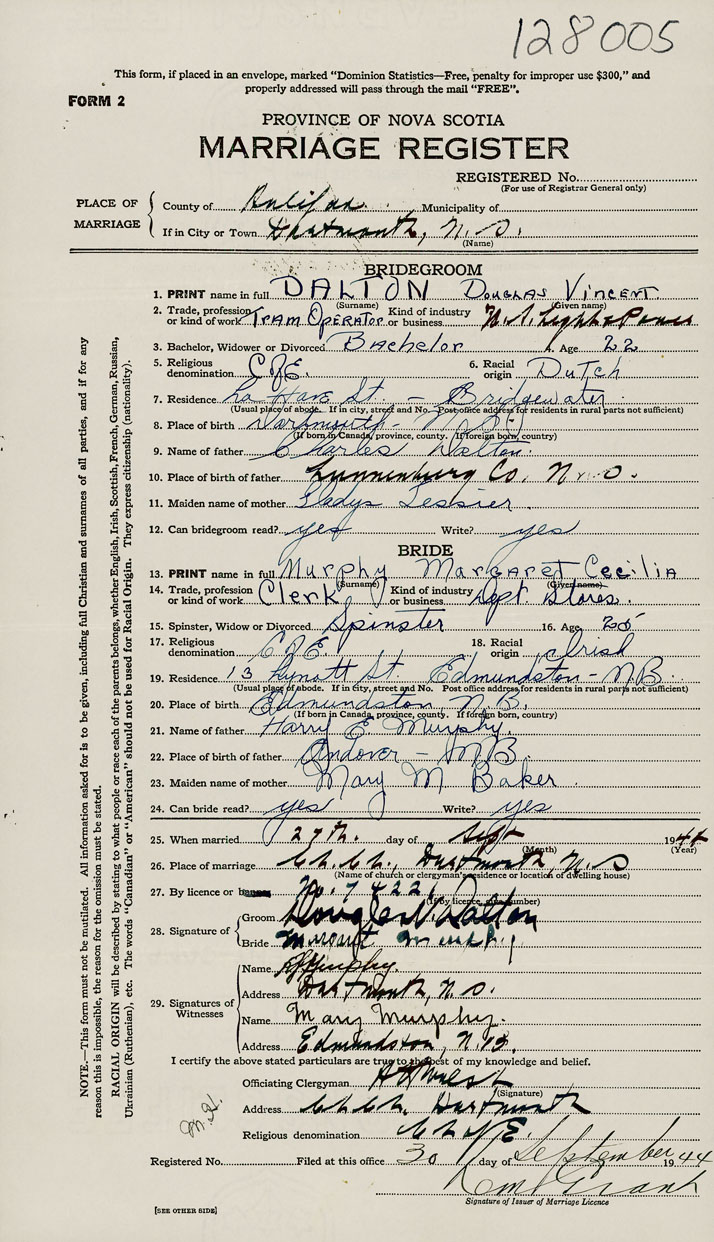 128005
This form, if placed in an envelope, marked “Dominion Statistics—Free, penalty for improper use $300,” and
properly addressed will pass through the mail “FREE”.
FORM 2
PROVINCE OF NOVA SCOTIA
MARRIAGE REGISTER
REGISTERED No.
(For use of Registrar General only)
PLACE OF MARRIAGE
County of Halifax Municipality of
If in City or Town Dartmouth, N.S.
(Name)
BRIDEGROOM
1. PRINT name in full DALTON Douglas Vincent
(Surname) (Given name)
2. Trade, profession or kind of work Tram Operator Kind of industry or business N.S. Light & Power
3. Bachelor, Widower or Divorced Bachelor 4. Age 22
5. Religious denomination C of E. 6. Racial origin Dutch
7. Residence La Have St. - Bridgewater
(Usual place of abode. If in city, street and No. Post office address for residents in rural parts not sufficient)
8. Place of birth Dartmouth - N.S.
(If born in Canada, province, county. If foreign born, country)
9. Name of father Charles Dalton
10. Place of birth of father Lunnenburg Co, N.S.
11. Maiden name of mother Gladys Lessier
12. Can bridegroom read? yes Write? yes
BRIDE
13. PRINT name in full Murphy Margaret Cecilia
(Surname) (Given name)
14. Trade, profession or kind of work Clerk Kind of industry or business Dept Stores.
15. Spinster, Widow or Divorced Spinster 16. Age 25
17. Religious denomination C of E. 18. Racial origin Irish
19. Residence 13 Lynott St. Edmundston - N.B.
(Usual place of abode. If in city, street and No. Post office address for residents in rural parts not sufficient)
20. Place of birth Edmundston, N.B.
(If born in Canada, province, county. If foreign born, country)
21. Name of father Harry E. Murphy.
22. Place of birth of father Andover - N.B.
23. Maiden name of mother Mary M Baker
24. Can bride read? yes Write? yes
25. When married 27th. day of Sept 1944
(Month) (Year)
26. Place of marriage Ch. Ch., Dartmouth, N.S
(Name of church or clergyman's residence or location of dwelling house)
27. By licence or banns No. 7422
(If by licence, give number)
28. Signature of
Groom Douglas V. Dalton
Bride Margaret Murphy
29. Signatures of Witnesses
Name Murphy.
Address Dartmouth, N.S.
Name Mary Murphy.
Address Edmundston, N.B.
I certify the above stated particulars are true to the best of my knowledge and belief.
Officiating Clergyman
(Signature)
Address Ch. Ch. Dartmouth
Religious denomination Ch of E.
Registered No. Filed at this office 30 day of September 1944
Grant
Signature of Issuer of Marriage Licence
[SEE OTHER SIDE]
NOTE.—This form must not be mutilated. All information asked for is to be given, including full Christian and surnames of all parties, and if for any
reason this is impossible, the reason for the omission must be stated.
RACIAL ORIGIN will be described by stating to what people or race each of the parents belongs, whether English, Irish, Scottish, French, German, Russian,
Ukrainian (Ruthenian), etc. The words “Canadian” or “American” should not be used for Racial Origin. They express citizenship (nationality).